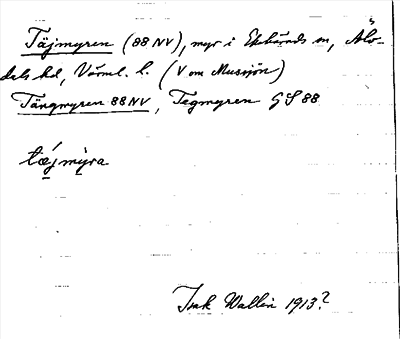 Täjmyren (88 NV), myr i Ekshärads sn, Älv-
dals hd, Värml. l. (V om Mussjön)
Tängmyren 88 NV, Tegmyren GS 88
tǽ̣jmỳra
Isak Wallin 1913?